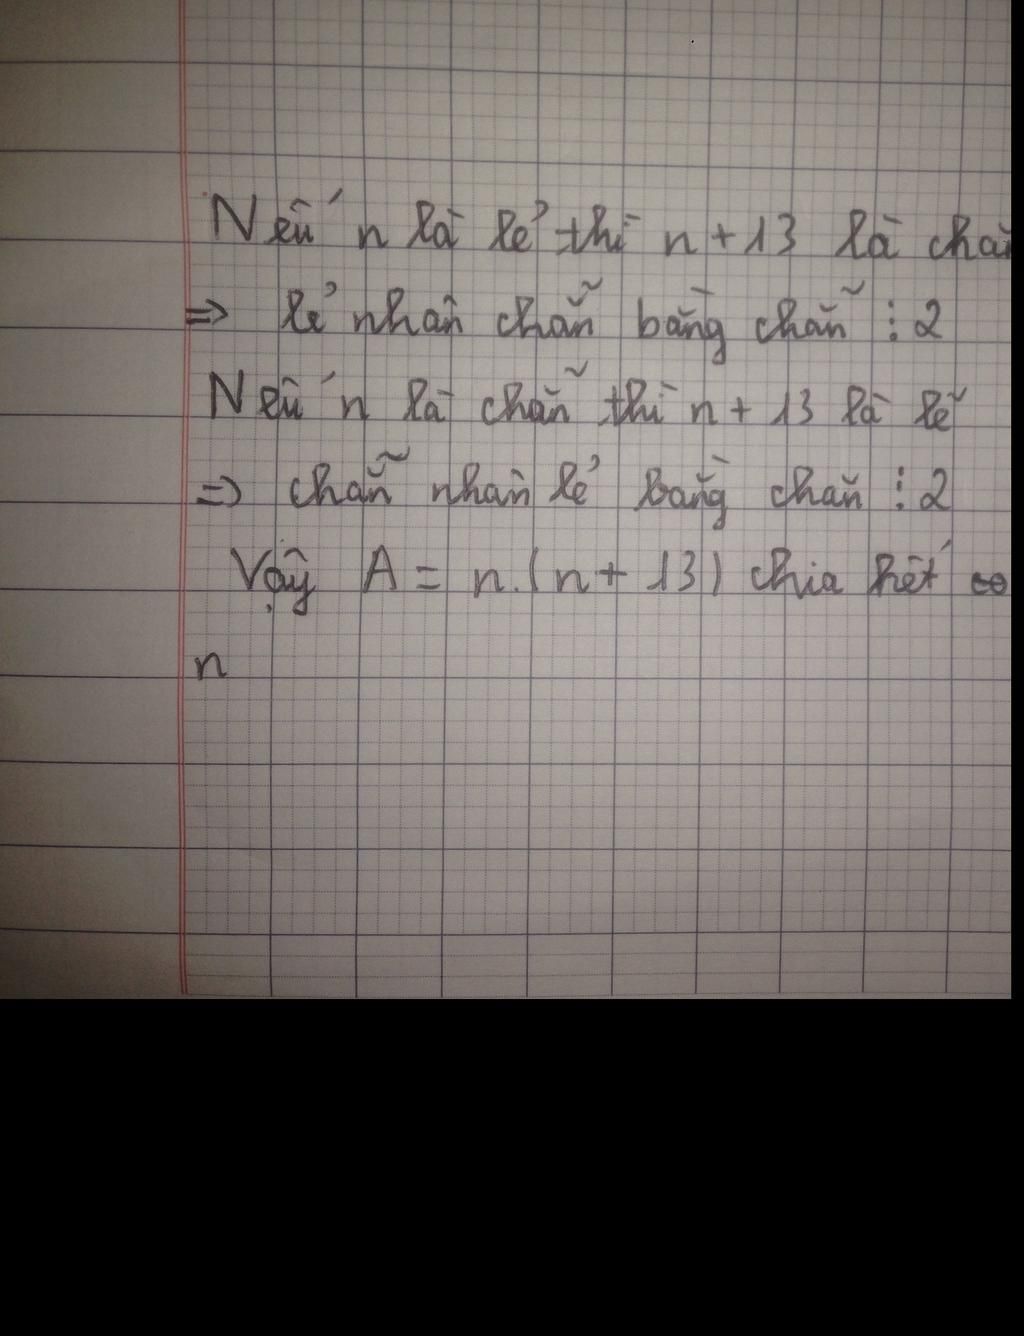 Nếu n là lẻ thì n + 13 là chẵ
=> lẻ nhân chẵn bằng chẵn ⋮ 2
Nếu n là chẵn thì n + 13 là lẽ
=> chẵn nhân lẻ bằng chăn ⋮ 2
Vậy A = n.(n + 13) chia hết
n